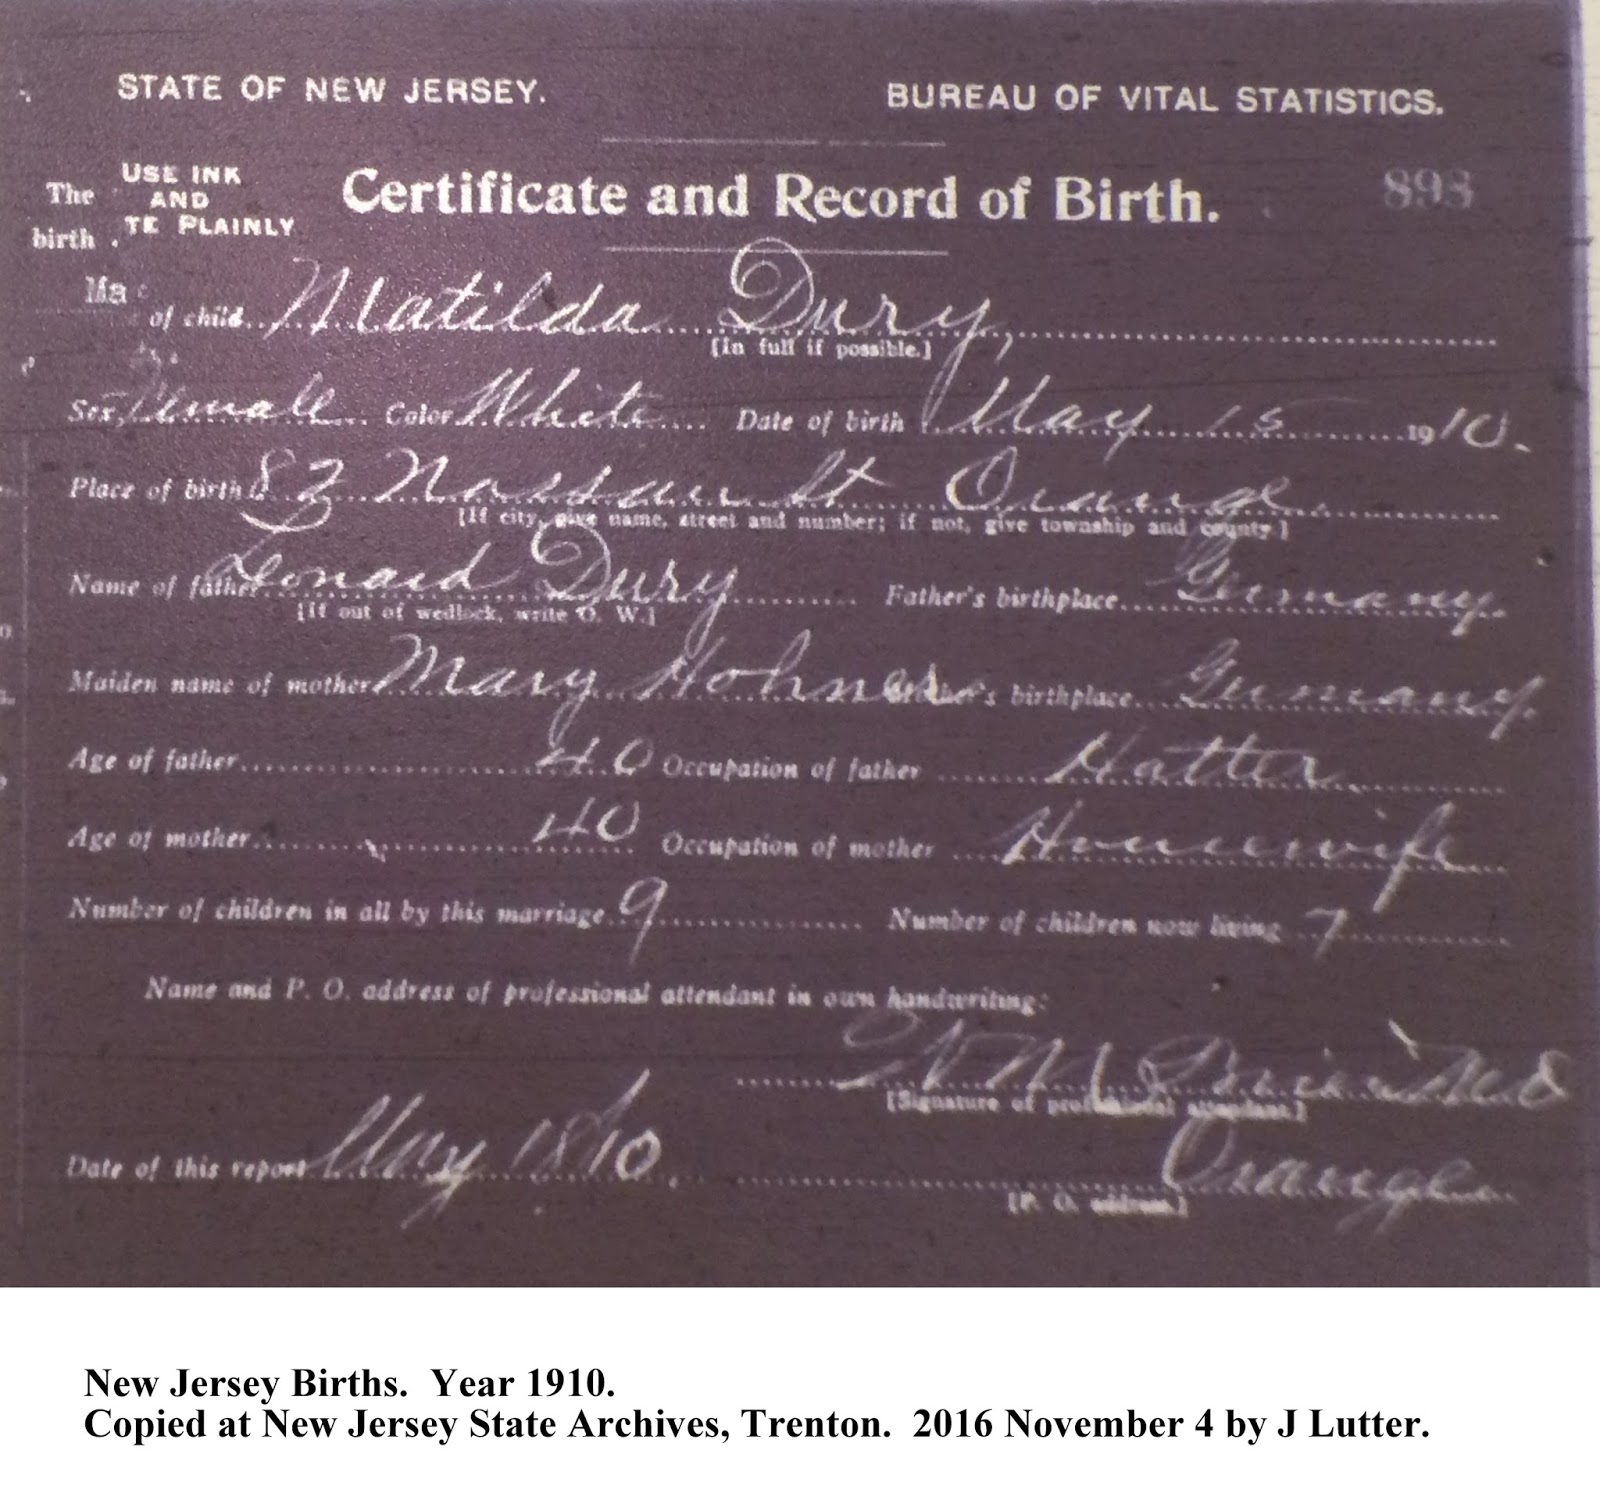 STATE OF NEW JERSEY. BUREAU OF VITAL STATISTICS.
The birth . USE INK AND TE PLAINLY Certificate and Record of Birth. 893
Ma of child Matilda Dury,
[In full if possible.]
Sex, Female Color White Date of birth May 15 1910.
Place of birth 83 Nassau St Orange
[If city, give name, street and number; if not, give township and county.]
Name of father Leonard Dury Father's birthplace Germany.
[If out of wedlock, write O. W.]
Maiden name of mother Mary Hohner Mother's birthplace Germany.
Age of father 40 Occupation of father Hatter
Age of mother 40 Occupation of mother Housewife
Number of children in all by this marriage 9 Number of children now living 7
Name and P. O. address of professional attendant in own handwriting:
[Signature of professional attendant.]
Date of this report May Orange
[P. O. address.]
New Jersey Births. Year 1910.
Copied at New Jersey State Archives, Trenton. 2016 November 4 by J Lutter.